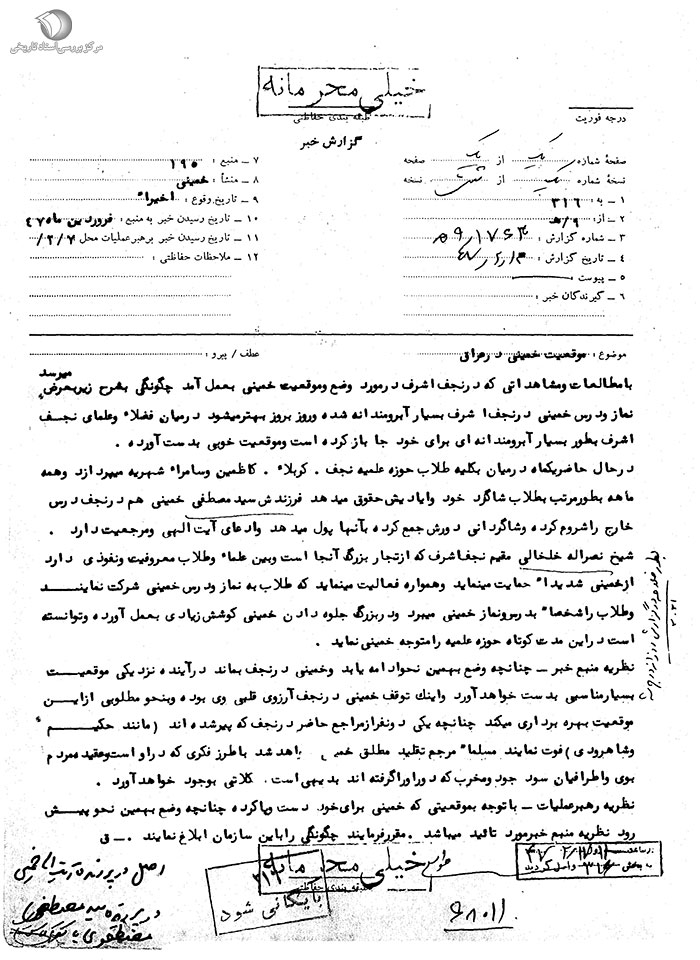 مرکز بررسی اسناد تاریخی
خیلی محرمانه
طبقه بندی حفاظتی
گزارش خبر
درجه فوریت
صفحهٔ شماره یک از یک صفحه
نسخهٔ شماره یک از نسخه
۱ – به : ۳۱۶
۲ – از: ۹/ه
۳ – شماره گزارش :
۴ – تاریخ گزارش :
۵ – پیوست :
۶ – گیرندگان خبر :
۷ – منبع : ۱۹۰
۸ – منشأ : خمینی
۹ – تاریخ وقوع : اخیرا"
۱۰ – تاریخ رسیدن خبر به منبع : فروردین ماه ۴۷
۱۱ – تاریخ رسیدن خبر برهبر عملیات محل ۲/۷/
۱۲ – ملاحظات حفاظتی :
موضوع : موقعیت خمینی در عراق
عطف / پیرو :
بامطالعات ومشاهداتی که درنجف اشرف درمورد وضع وموقعیت خمینی بعمل آمد چگونگی بشرح زیربعرض میرسد
نماز ودرس خمینی درنجف اشرف بسیار آبرومندانه شده وروز بروز بهترمیشود درمیان فضلاء وعلمای نجف
اشرف بطور بسیار آبرومندانه ای برای خود جا باز کرده است وموقعیت خوبی بدست آورده .
درحال حاضریکماه درمیان بکلیه طلاب حوزه علمیه نجف . کربلاء . کاظمین وسامراء شهریه میپردازد وهمه
ماهه بطورمرتب بطلاب شاگرد خود وایادیش حقوق میدهد فرزندش سید مصطفی خمینی هم درنجف درس
خارج راشروع کرده وشاگردانی دورش جمع کرده بآنها پول میدهد وادعای آیت الهی ومرجعیت دارد .
شیخ نصراله خلخالی مقیم نجف اشرف که ازتجار بزرگ آنجا است وبین علماء وطلاب معروفیت ونفوذی دارد
ازخمینی شدیدا" حمایت مینماید وهمواره فعالیت مینماید که طلاب به نماز ودرس خمینی شرکت نمایند
وطلاب راشخصا" بدرس ونماز خمینی میبرد ودربزرگ جلوه دادن خمینی کوشش زیادی بعمل آورده وتوانسته
است دراین مدت کوتاه حوزه علمیه رامتوجه خمینی نماید .
نظریه منبع خبر – چنانچه وضع بهمین نحوادامه یابد وخمینی درنجف بماند درآینده نزدیکی موقعیت
بسیارمناسبی بدست خواهدآورد واینک توقف خمینی درنجف آرزوی قلبی وی بوده وبنحو مطلوبی ازاین
موقعیت بهره برداری میکند چنانچه یکی دونفرازمراجع حاضر درنجف که پیرشده اند (مانند حکیم
وشاهرودی) فوت نمایند مسلما" مرجع تقلید مطلق خمی اهد شد باطرز فکری که دراو است وعقیده مردم
بوی واطرافیان سود جود ومخرب که دوراوراگرفته اند بدیهی است . کلاتی بوجود خواهدآورد .
نظریه رهبرعملیات – باتوجه بموقعیتی که خمینی برای خود دست وپاکرده چنانچه وضع بهمین نحو پیش
رود نظریه منبع خبرمورد تائید میباشد . مقررفرمایند چگونگی راباین سازمان ابلاغ نمایند . – ق
خیلی محرمانه
طبقه بندی حفاظتی
۳۱۲
بایگانی شود
در ساعت
به بخش ۳۱۶ واصل گردید
اصل در پرونده آیت اله خمینی
در پرونده سید مصطفی